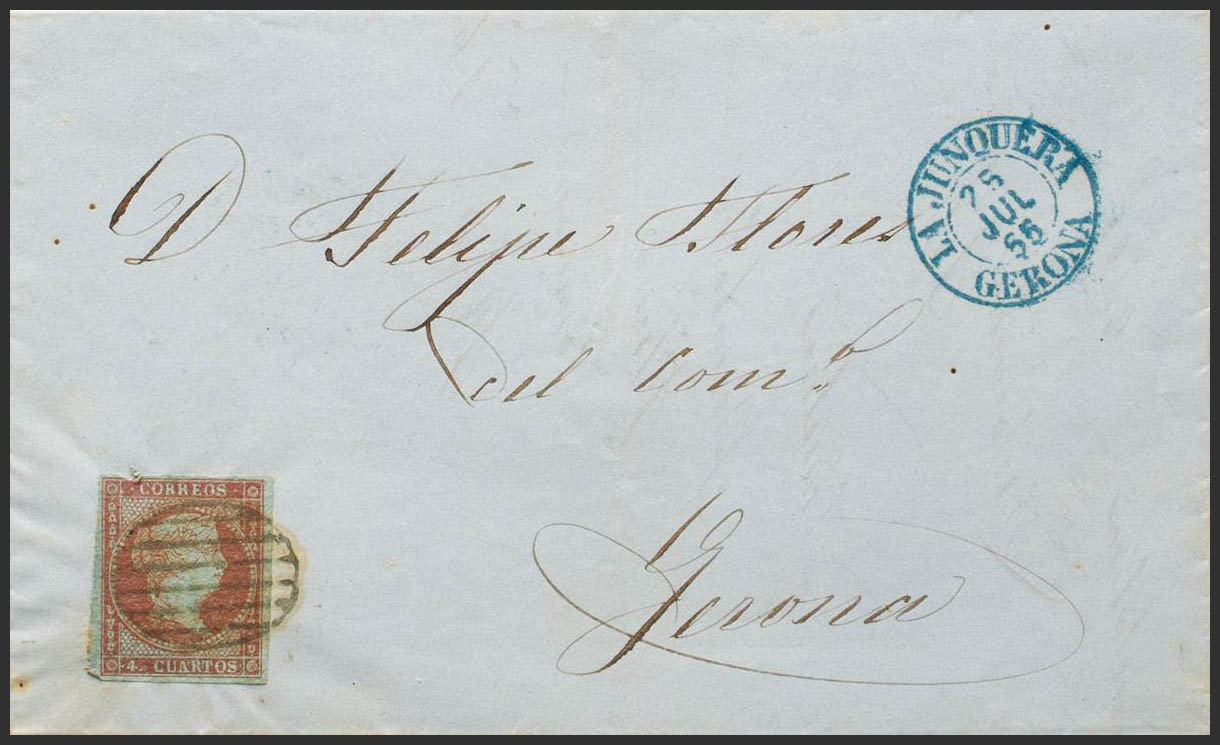 LA JUNQUERA
25
JUL
56
GERONA
D Felipe Flores
del Com.º
Gerona
CORREOS
4. CUARTOS